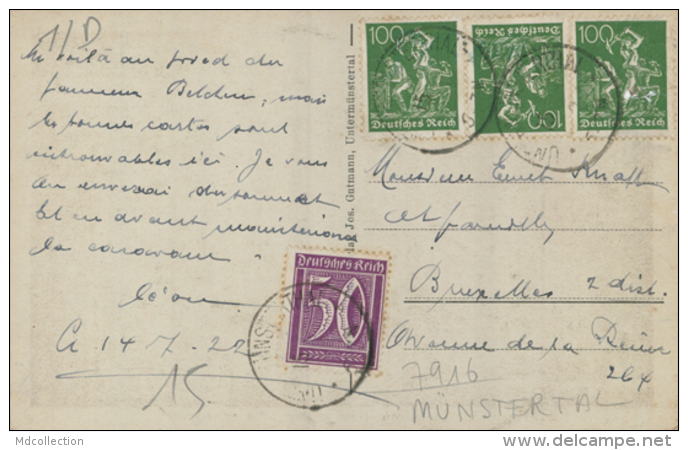 1/D
Me voilà au pied du
fameux Belchen, mais
les bonnes cartes sont
introuvables ici. Je vous
en enverrai du sommet
Et en avant maintenant
la caravane
Léon
14 7. 22
15
Jos. Gutmann, Untermünstertal
100
Deutsches Reich
100
Deutsches Reich
100
Deutsches Reich
Deutsches Reich
50
Monsieur Ernest
et famille
Bruxelles 2 dist.
de la Reine
264
7916
MÜNSTERTAL
Mdcollection
www.delcampe.net